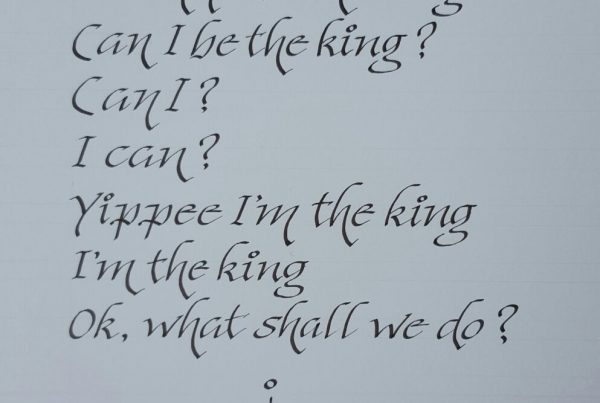 Can I be the king?
Can I?
I can?
Yippee I'm the king
I'm the king
Ok, what shall we do?